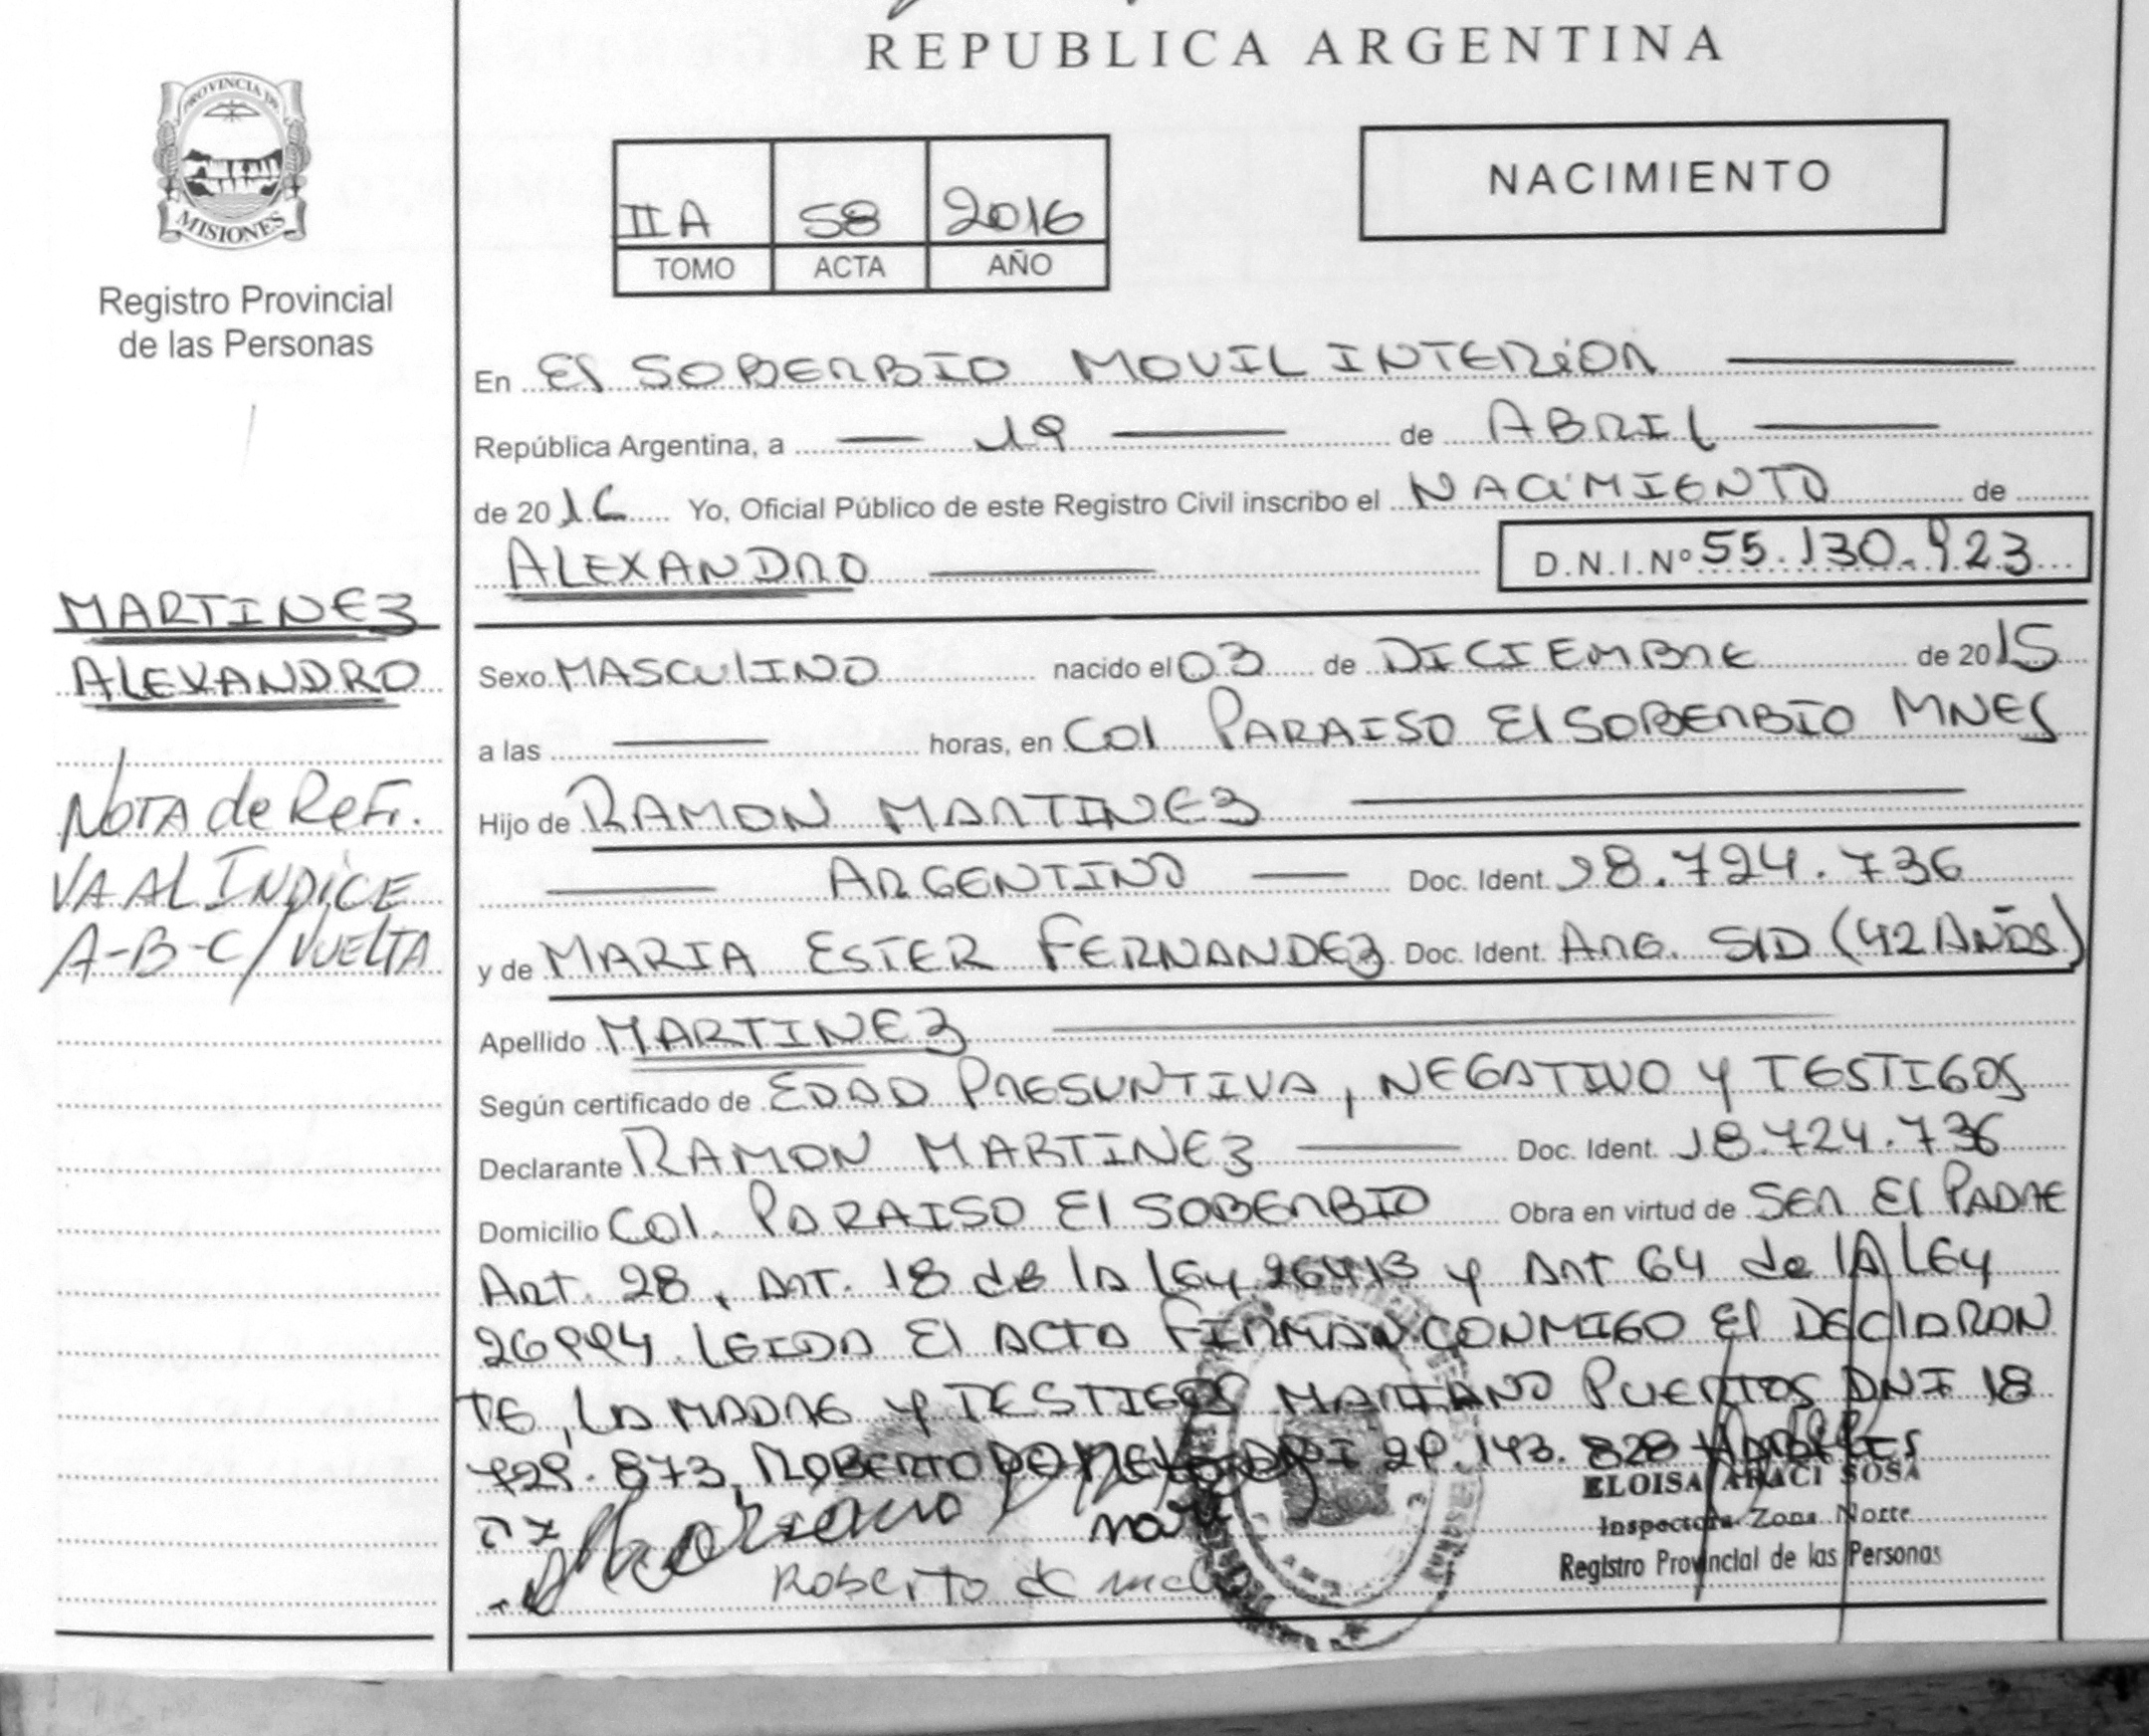 REPUBLICA ARGENTINA
PROVINCIA DE
MISIONES
Registro Provincial
de las Personas
IIA 58 2016
TOMO ACTA AÑO
NACIMIENTO
En El SOBERBIO MOVIL INTERIOR
República Argentina, a 19 de ABRIL
de 2016 Yo, Oficial Público de este Registro Civil inscribo el NACIMIENTO de
ALEXANDRO D.N.I.Nº 55.130.923
MARTINEZ
ALEXANDRO
Nota de Ref.
VA AL INDICE
A-B-C/VUELTA
Sexo MASCULINO nacido el 03 de DICIEMBRE de 2015
a las horas, en Col PARAISO El SOBERBIO MNES
Hijo de RAMON MARTINEZ
ARGENTINO Doc. Ident. 18.724.736
y de MARIA ESTER FERNANDEZ Doc. Ident. ARG. S/D (42 AÑOS)
Apellido MARTINEZ
Según certificado de EDAD PRESUNTIVA, NEGATIVO Y TESTIGOS
Declarante RAMON MARTINEZ Doc. Ident. 18.724.736
Domicilio Col. PARAISO El SOBERBIO Obra en virtud de SER El PADRE
ART. 28, ART. 18 de la ley 26413 y ART 64 de lA ley
26994. LEIDA El ACTA FIRMAN CONMIGO El DEClARAN
TE, LA MADRE Y TESTIGOS MARIANO PUERTOS DNI 18
729.873, ROBERTO DE MELO DNI 29.143.828
Mariano
Roberto de melo
ELOISA ARACI SOSA
Inspectora Zona Norte
Registro Provincial de las Personas